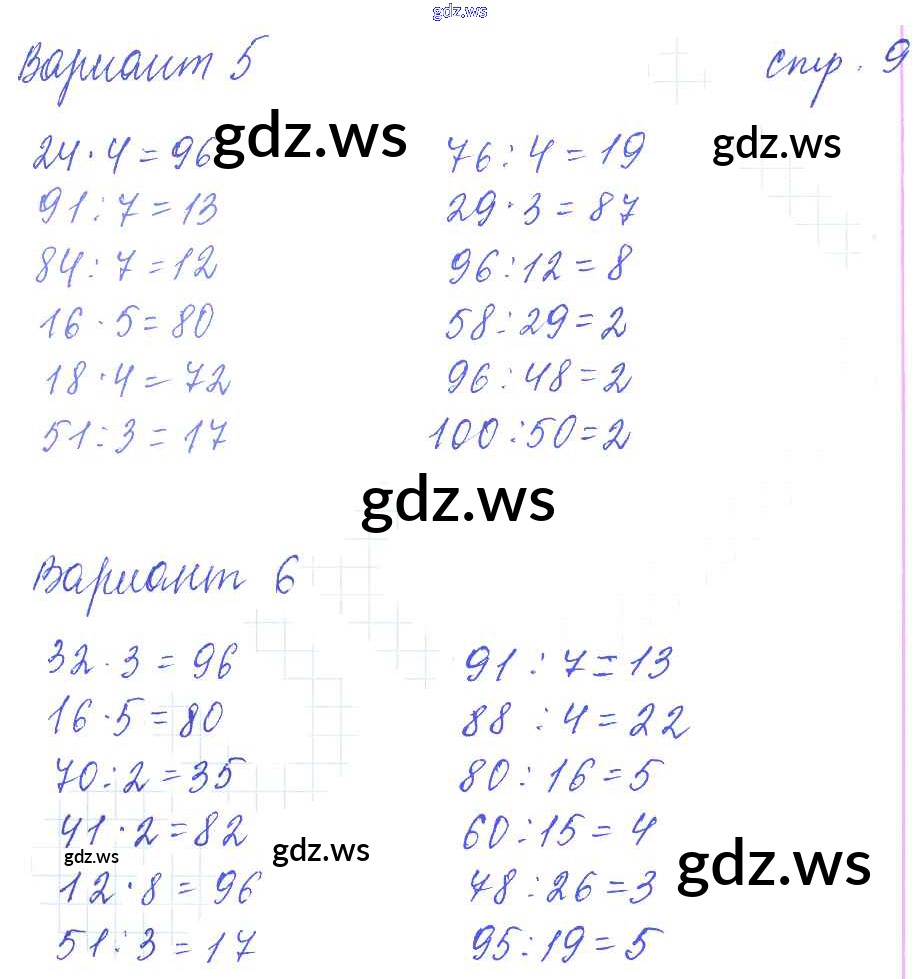 gdz.ws
Вариант 5 стр. 9
24 · 4 = 96 gdz.ws 76 : 4 = 19 gdz.ws
91 : 7 = 13 29 · 3 = 87
84 : 7 = 12 96 : 12 = 8
16 · 5 = 80 58 : 29 = 2
18 · 4 = 72 96 : 48 = 2
51 : 3 = 17 100 : 50 = 2
gdz.ws
Вариант 6
32 · 3 = 96 91 : 7 = 13
16 · 5 = 80 88 : 4 = 22
70 : 2 = 35 80 : 16 = 5
41 · 2 = 82 60 : 15 = 4
gdz.ws gdz.ws gdz.ws
12 · 8 = 96 78 : 26 = 3
51 : 3 = 17 95 : 19 = 5